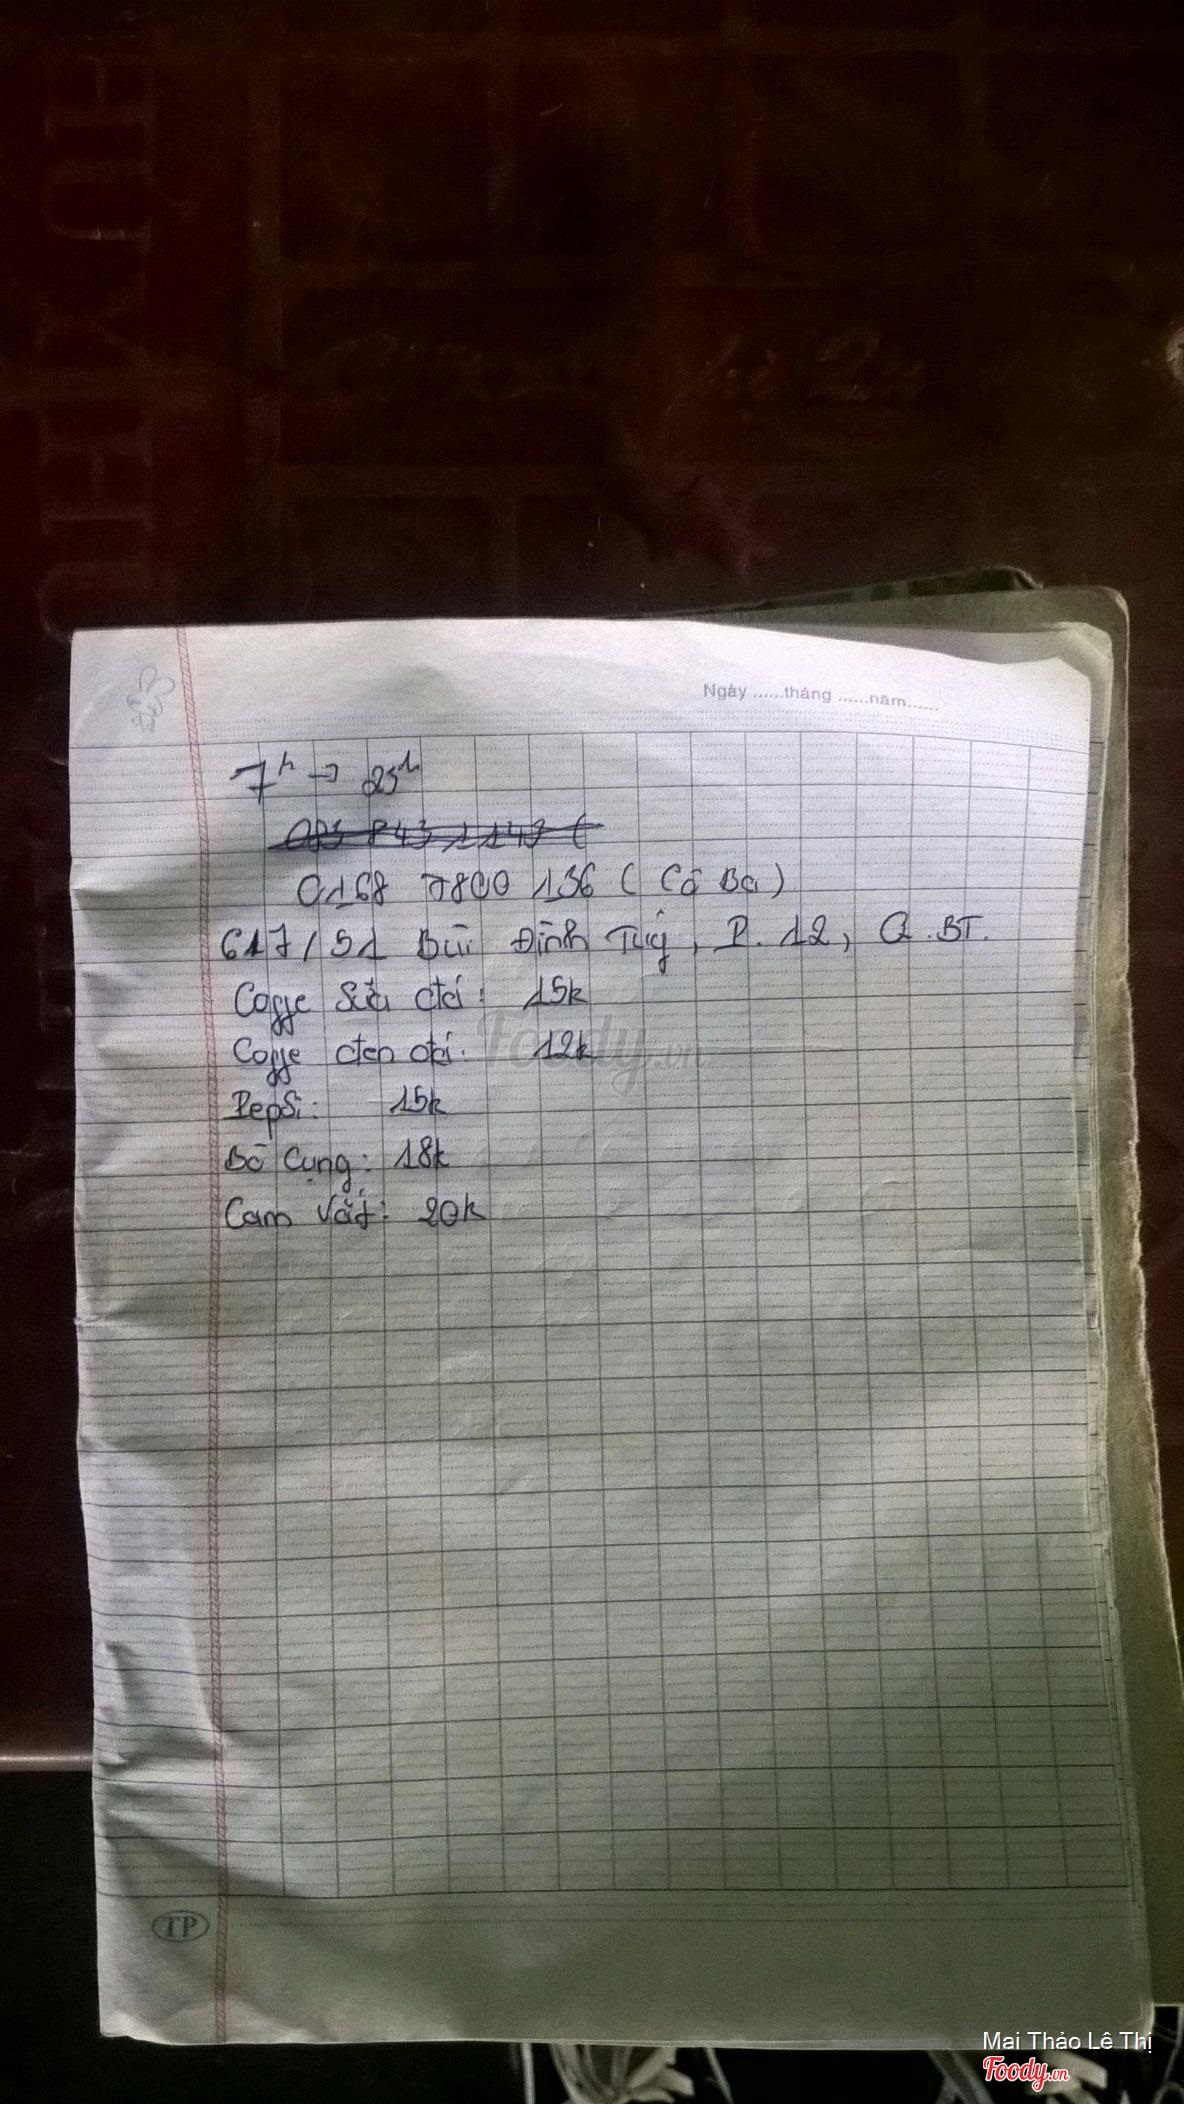 Ngày ......tháng ......năm......
7h → 23h
0168 7800 136 ( Cô Ba )
617/51 Bùi Đình Tuý, P. 12, Q. BT.
Coffe sữa đá: 15k
Coffe đen đá: 12k
Pepsi: 15k
Bò Cụng: 18k
Cam Vắt: 20k
Foody.vn
TP
Mai Thảo Lê Thị
Foody.vn